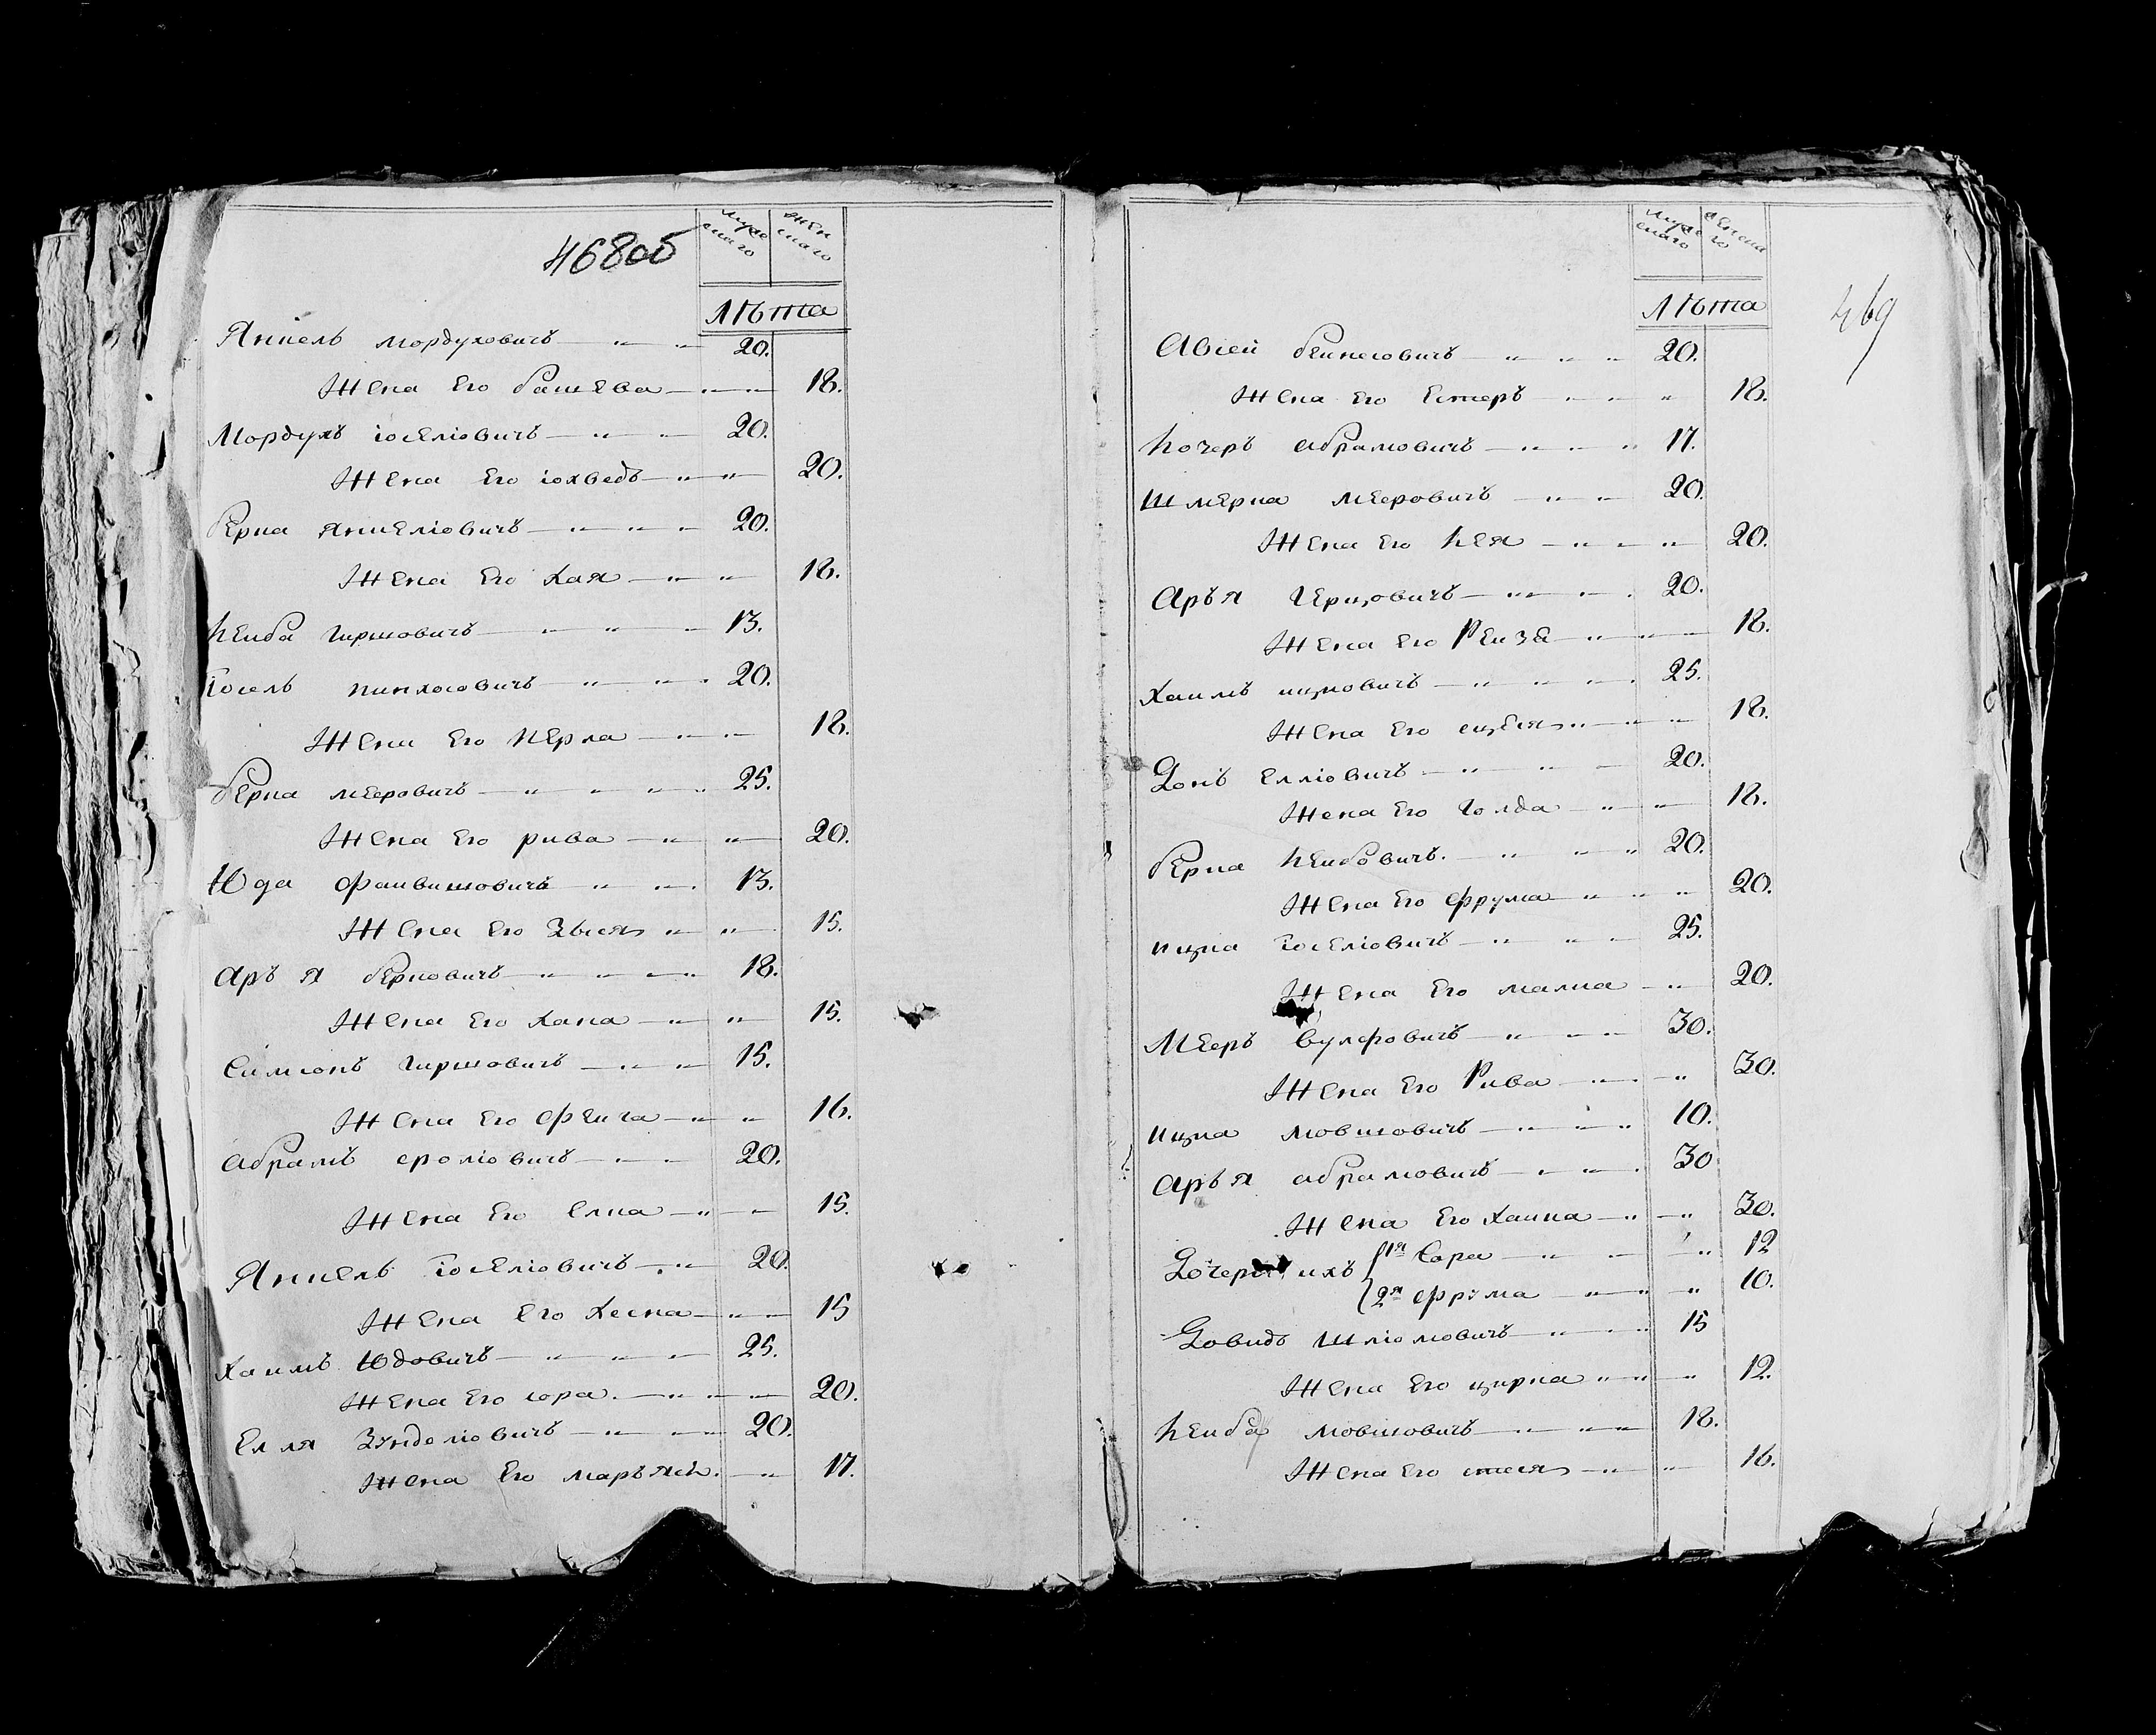 468об
мужескаго женскаго
лѣта
Янкель мордуховичъ 20.
Жена его башева 18.
Мордухъ іоселіовичъ 20.
Жена его іохведъ 20.
Берка янкеліовичъ 20.
Жена его Хая 18.
Лейба гиршовичъ 13.
Іосель пинхосовичъ 20.
Жена его перла 18.
берка мееровичъ 25.
Жена его рива 20.
Юда файвишовичъ 13.
Жена его Звися 15.
Аръя берковичъ 18.
Жена его Хана 15.
Симіонъ гиршовичъ 15.
Жена его Фейга 16.
Абрамъ сроліовичъ 20.
Жена его Елка 15.
Янкель іоселіовичъ 20.
Жена его Хесна 15
Хаимъ Юдовичъ 25.
Жена его сора 20.
Елля Зунделіовичъ 20.
Жена его 17.
мужескаго женскаго
лѣта
469
Авсей 20.
Жена его Естеръ 18.
абрамовичъ 17.
Шмерка мееровичъ 20.
Жена его Лея 20.
Аръя Герцовичъ 20.
Жена его Рейза 18.
Хаимъ ицковичъ 25.
Жена его 18.
елліовичъ 20.
Жена его Голда 18.
Берка лейбовичъ 20.
Жена его Фрума 20.
ицка Іоселіовичъ 25.
Жена его малка 20.
Мееръ Вулфовичъ 30.
Жена его Рива 30.
ицка мовшовичъ 10.
Аръя абрамовичъ 30
Жена его Хаика 30.
Дочери ихъ 1я Сора 12
2я Фрума 10.
Довидъ шліомовичъ 15
Жена его цирка 12.
Лейба мовшовичъ 18.
Жена его стися 16.